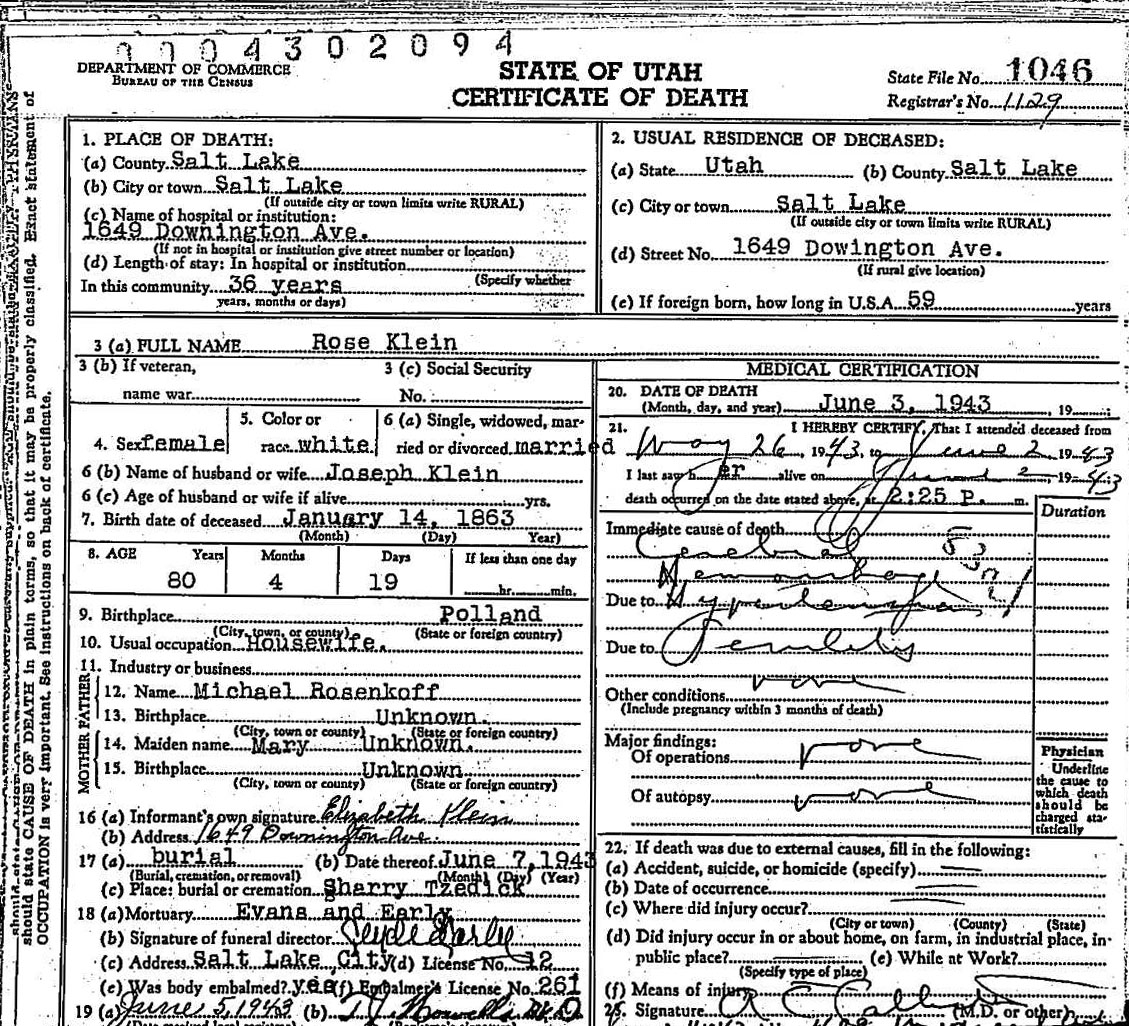 0 0 0 4 3 0 2 0 9 4
DEPARTMENT OF COMMERCE
BUREAU OF THE CENSUS
STATE OF UTAH
CERTIFICATE OF DEATH
State File No. 1046
Registrar's No. 1129
should state CAUSE OF DEATH in plain terms, so that it may be properly classified. Exact statement of
OCCUPATION is very important. See instructions on back of certificate.
1. PLACE OF DEATH:
(a) County Salt Lake
(b) City or town Salt Lake
(If outside city or town limits write RURAL)
(c) Name of hospital or institution:
1649 Downington Ave.
(If not in hospital or institution give street number or location)
(d) Length of stay: In hospital or institution
(Specify whether
In this community 36 years
years, months or days)
2. USUAL RESIDENCE OF DECEASED:
(a) State Utah (b) County Salt Lake
(c) City or town Salt Lake
(If outside city or town limits write RURAL)
(d) Street No. 1649 Dowington Ave.
(If rural give location)
(e) If foreign born, how long in U.S.A. 59 years
3 (a) FULL NAME Rose Klein
3 (b) If veteran,
name war
3 (c) Social Security
No.
4. Sex female
5. Color or
race white
6 (a) Single, widowed, mar-
ried or divorced married
6 (b) Name of husband or wife Joseph Klein
6 (c) Age of husband or wife if alive yrs.
7. Birth date of deceased January 14, 1863
(Month) (Day) Year)
8. AGE Years Months Days If less than one day
80 4 19 hr. min.
9. Birthplace Polland
(City, town, or county) (State or foreign country)
10. Usual occupation Housewife.
11. Industry or business
FATHER
12. Name Michael Rosenkoff
13. Birthplace Unknown.
(City, town or county) (State or foreign country)
MOTHER
14. Maiden name Mary Unknown.
15. Birthplace Unknown
(City, town or county) (State or foreign country)
16 (a) Informant's own signature Elizabeth Klein
(b) Address 1649 Downington Ave
17 (a) burial (b) Date thereof June 7, 1943
(Burial, cremation, or removal) (Month) (Day) (Year)
(c) Place: burial or cremation Sharry Tzedick
18 (a) Mortuary Evans and Early
(b) Signature of funeral director Clyde Early
(c) Address Salt Lake City (d) License No. 12
(e) Was body embalmed? yes (f) Embalmer's License No. 261
19 (a) June 5, 1943 (b)
MEDICAL CERTIFICATION
20. DATE OF DEATH
(Month, day, and year) June 3, 1943, 19
21. I HEREBY CERTIFY, That I attended deceased from
May 26, 1943, to June 2 1943
I last saw her alive on June 2 1943
death occurred on the date stated above, at 2:25 P. m.
Duration
Immediate cause of death
Cerebral
Hemorrhage
Due to Hypertension
Due to Senility
Other conditions none
(Include pregnancy within 3 months of death)
Major findings:
Of operations none
Of autopsy none
Physician
Underline
the cause to
which death
should be
charged sta-
tistically
22. If death was due to external causes, fill in the following:
(a) Accident, suicide, or homicide (specify)
(b) Date of occurrence
(c) Where did injury occur?
(City or town) (County) (State)
(d) Did injury occur in or about home, on farm, in industrial place, in-
public place? (e) While at Work?
(Specify type of place)
(f) Means of injury
Signature (M.D. or other)